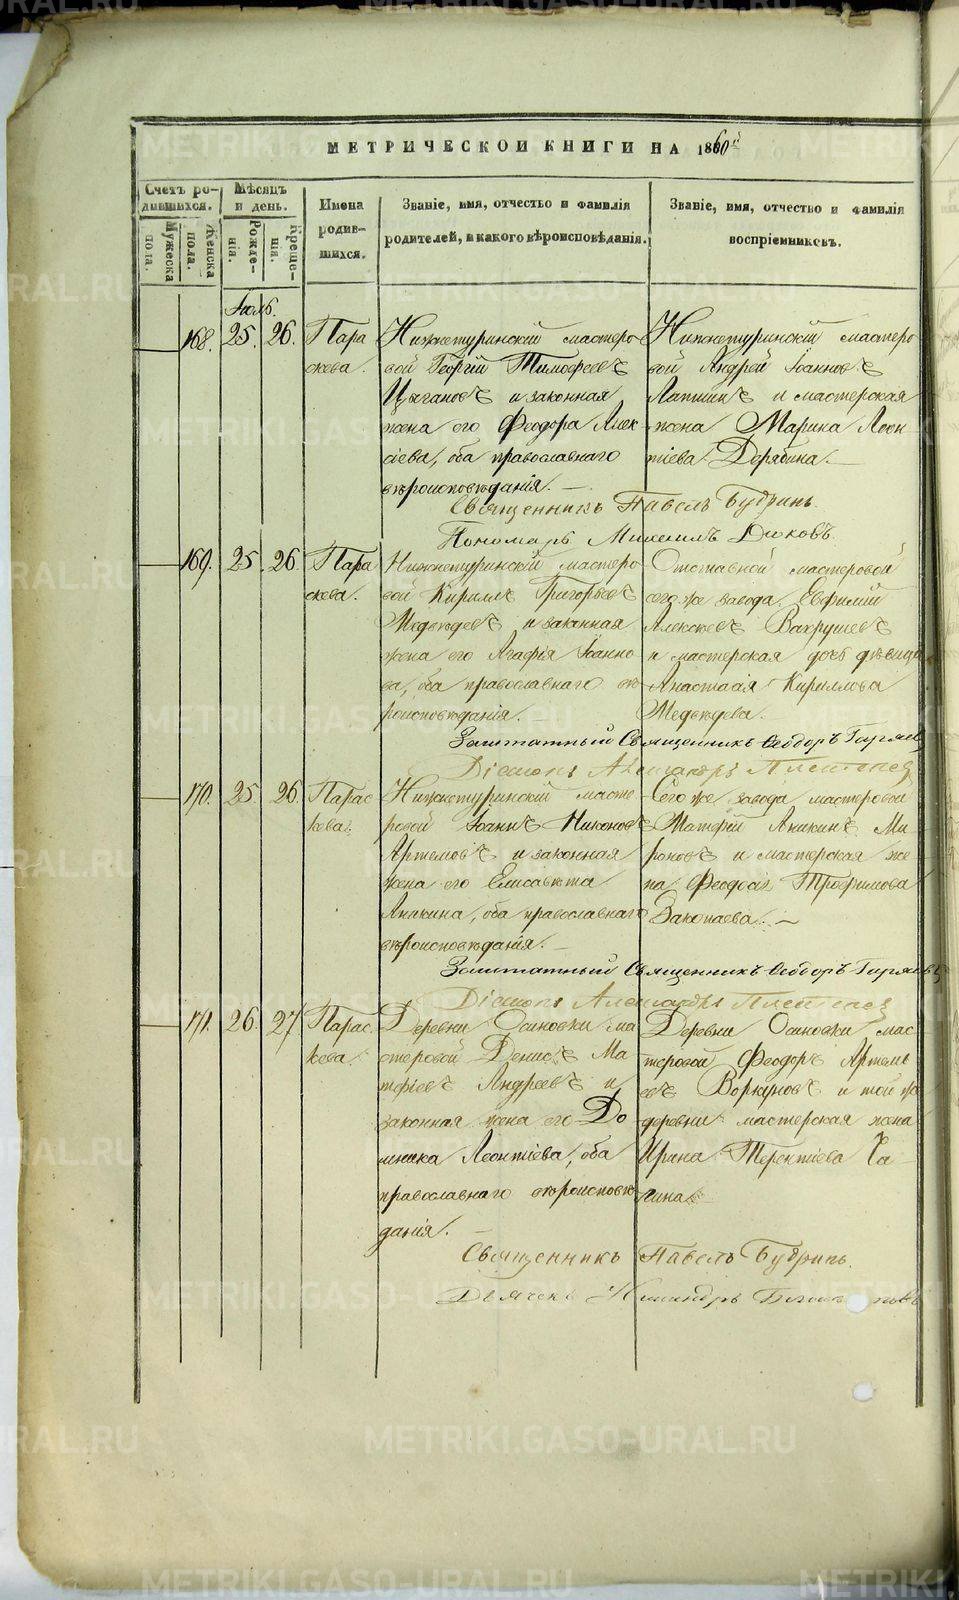 МЕТРИЧЕСКОЙ КНИГИ НА 1860й
Счетъ ро-
дившихся.
Мѣсяцъ
и день.
Имена
родив-
шихся.
Званіе, имя, отчество и фамилія
родителей, и какого вѣроисповѣданія.
Званіе, имя, отчество и фамилія
воспріемниковъ.
Мужеска
пола.
Женска
пола.
Рожде-
нія.
Креще-
нія.
Іюль.
168. 25. 26. Пара
скева.
Нижнетуринскій мастеро-
вой Георгій Тимофеевъ
Цыгановъ и законная
жена его Феодора Алек
сіева, оба православнаго
вѣроисповѣданія.
Нижнетуринскій мастеро
вой Андрей Іоанновъ
Лапшинъ и мастерская
жена Марина Леон
тіева Дерябина.
Священникъ Павелъ Будринъ.
Пономарь Михаилъ Диковъ.
169. 25 26 Пара
скева.
Нижнетуринскій мастеро-
вой Кириллъ Григорьевъ
Медвѣдевъ и законная
жена его Агафія Іоанно
ва, оба православнаго вѣ
роисповѣданія.
Отставной мастеровой
сего же завода Евфимій
Алексѣевъ Вахрушевъ
и мастерская дочь дѣвица
Анастасія Кириллова
Медвѣдева.
Заштатный Священникъ Ѳеодоръ Гиряевъ
Діаконъ Александръ
170. 25 26 Парас
кева.
Нижнетуринскій масте-
ровой Іоаннъ Никоновъ
Артемовъ и законная
жена его Елисавета
Аникина, оба православнаго
вѣроисповѣданія.
Сего же завода мастеровой
Матфій Аникинъ Ми-
роновъ и мастерская же
на Феодосія Трофимова
Закопаева.
Заштатный Священникъ Ѳеодоръ Гиряевъ
Діаконъ Александръ
171. 26 27 Парас
кева.
Деревни Осиновки ма
стеровой Денисъ Ма
тфіевъ Андреевъ и
законная жена его До
мника Леонтіева, оба
православнаго вѣроисповѣ
данія.
Деревни Осиновки мас
теровой Феодоръ Артемь
евъ Воркуновъ и той же
деревни мастерская жена
Ирина Терентіева Ча
гина.
Священникъ Павелъ Будринъ.
Дьячекъ
METRIKI.GASO-URAL.RU